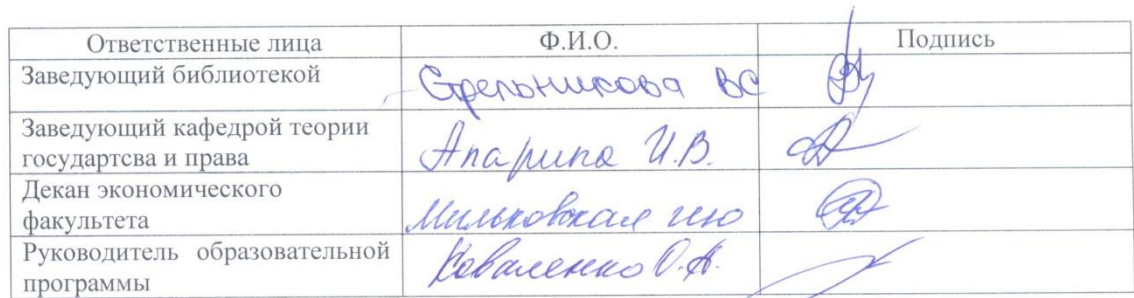 Ответственные лица Ф.И.О. Подпись
Заведующий библиотекой Стрельникова ВС
Заведующий кафедрой теории
государтсва и права Апарина И.В.
Декан экономического
факультета Мильковская
Руководитель образовательной
программы Коваленко О.А.